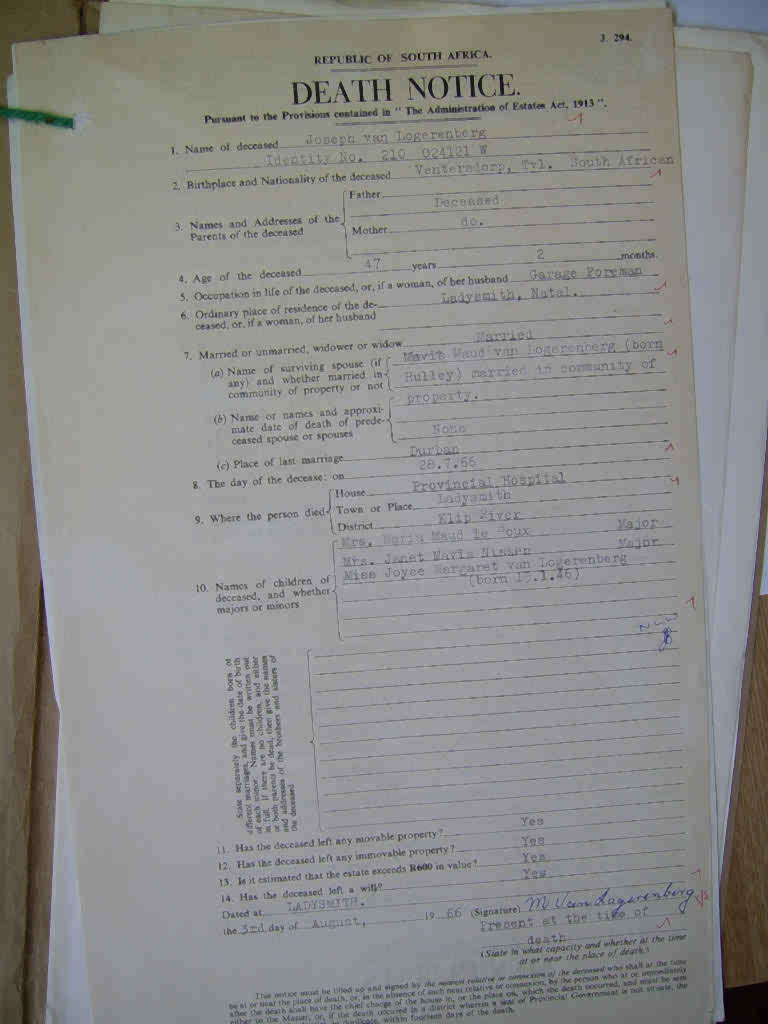 J. 294.
REPUBLIC OF SOUTH AFRICA.
DEATH NOTICE.
Pursuant to the Provisions contained in "The Administration of Estates Act, 1913".
1. Name of deceased Joseph van Logerenberg
Identity No. 210 024121 W
2. Birthplace and Nationality of the deceased Ventersdorp, Tvl. South African
3. Names and Addresses of the Parents of the deceased
Father Deceased
Mother do.
4. Age of the deceased 47 years 2 months.
5. Occupation in life of the deceased, or, if a woman, of her husband Garage Foreman
6. Ordinary place of residence of the de-
ceased, or, if a woman, of her husband Ladysmith, Natal.
7. Married or unmarried, widower or widow Married
(a) Name of surviving spouse (if Mavis Maud van Logerenberg (born
any) and whether married in Hulley) married in community of
community of property or not property.
(b) Name or names and approxi-
mate date of death of prede-
ceased spouse or spouses None
(c) Place of last marriage Durban
8. The day of the decease: on 28.7.66
9. Where the person died
House Provincial Hospital
Town or Place Ladysmith
District Klip River
10. Names of children of
deceased, and whether
majors or minors
Mrs. Maud le Roux Major
Mrs. Janet Mavis Major
Miss Joyce Margaret van Logerenberg
(born .1.46)
State separately the children born of
different marriages, and give the date of birth
of each minor. Names must be written out
in full. If there are no children, and either
or both parents be dead, then give the names
and addresses of the brothers and sisters of
the deceased
11. Has the deceased left any movable property? Yes
12. Has the deceased left any immovable property? Yes
13. Is it estimated that the estate exceeds R600 in value? Yes
14. Has the deceased left a will? Yes
Dated at LADYSMITH.
the 3rd day of August, 19 66 (Signature) M Van Logerenberg
Present at the time of
death
(State in what capacity and whether at the time
at or near the place of death.)
This notice must be filled up and signed by the nearest relative or connexion of the deceased who shall at the time
be at or near the place of death, or, in the absence of such near relative or connexion, by the person who at or immediately
after the death shall have the chief charge of the house in, or the place on, which the death occurred, and must be sent
either to the Master, or, if the death occurred in a district wherein a seat of Provincial Government is not situate, the
in duplicate, within fourteen days of the death.